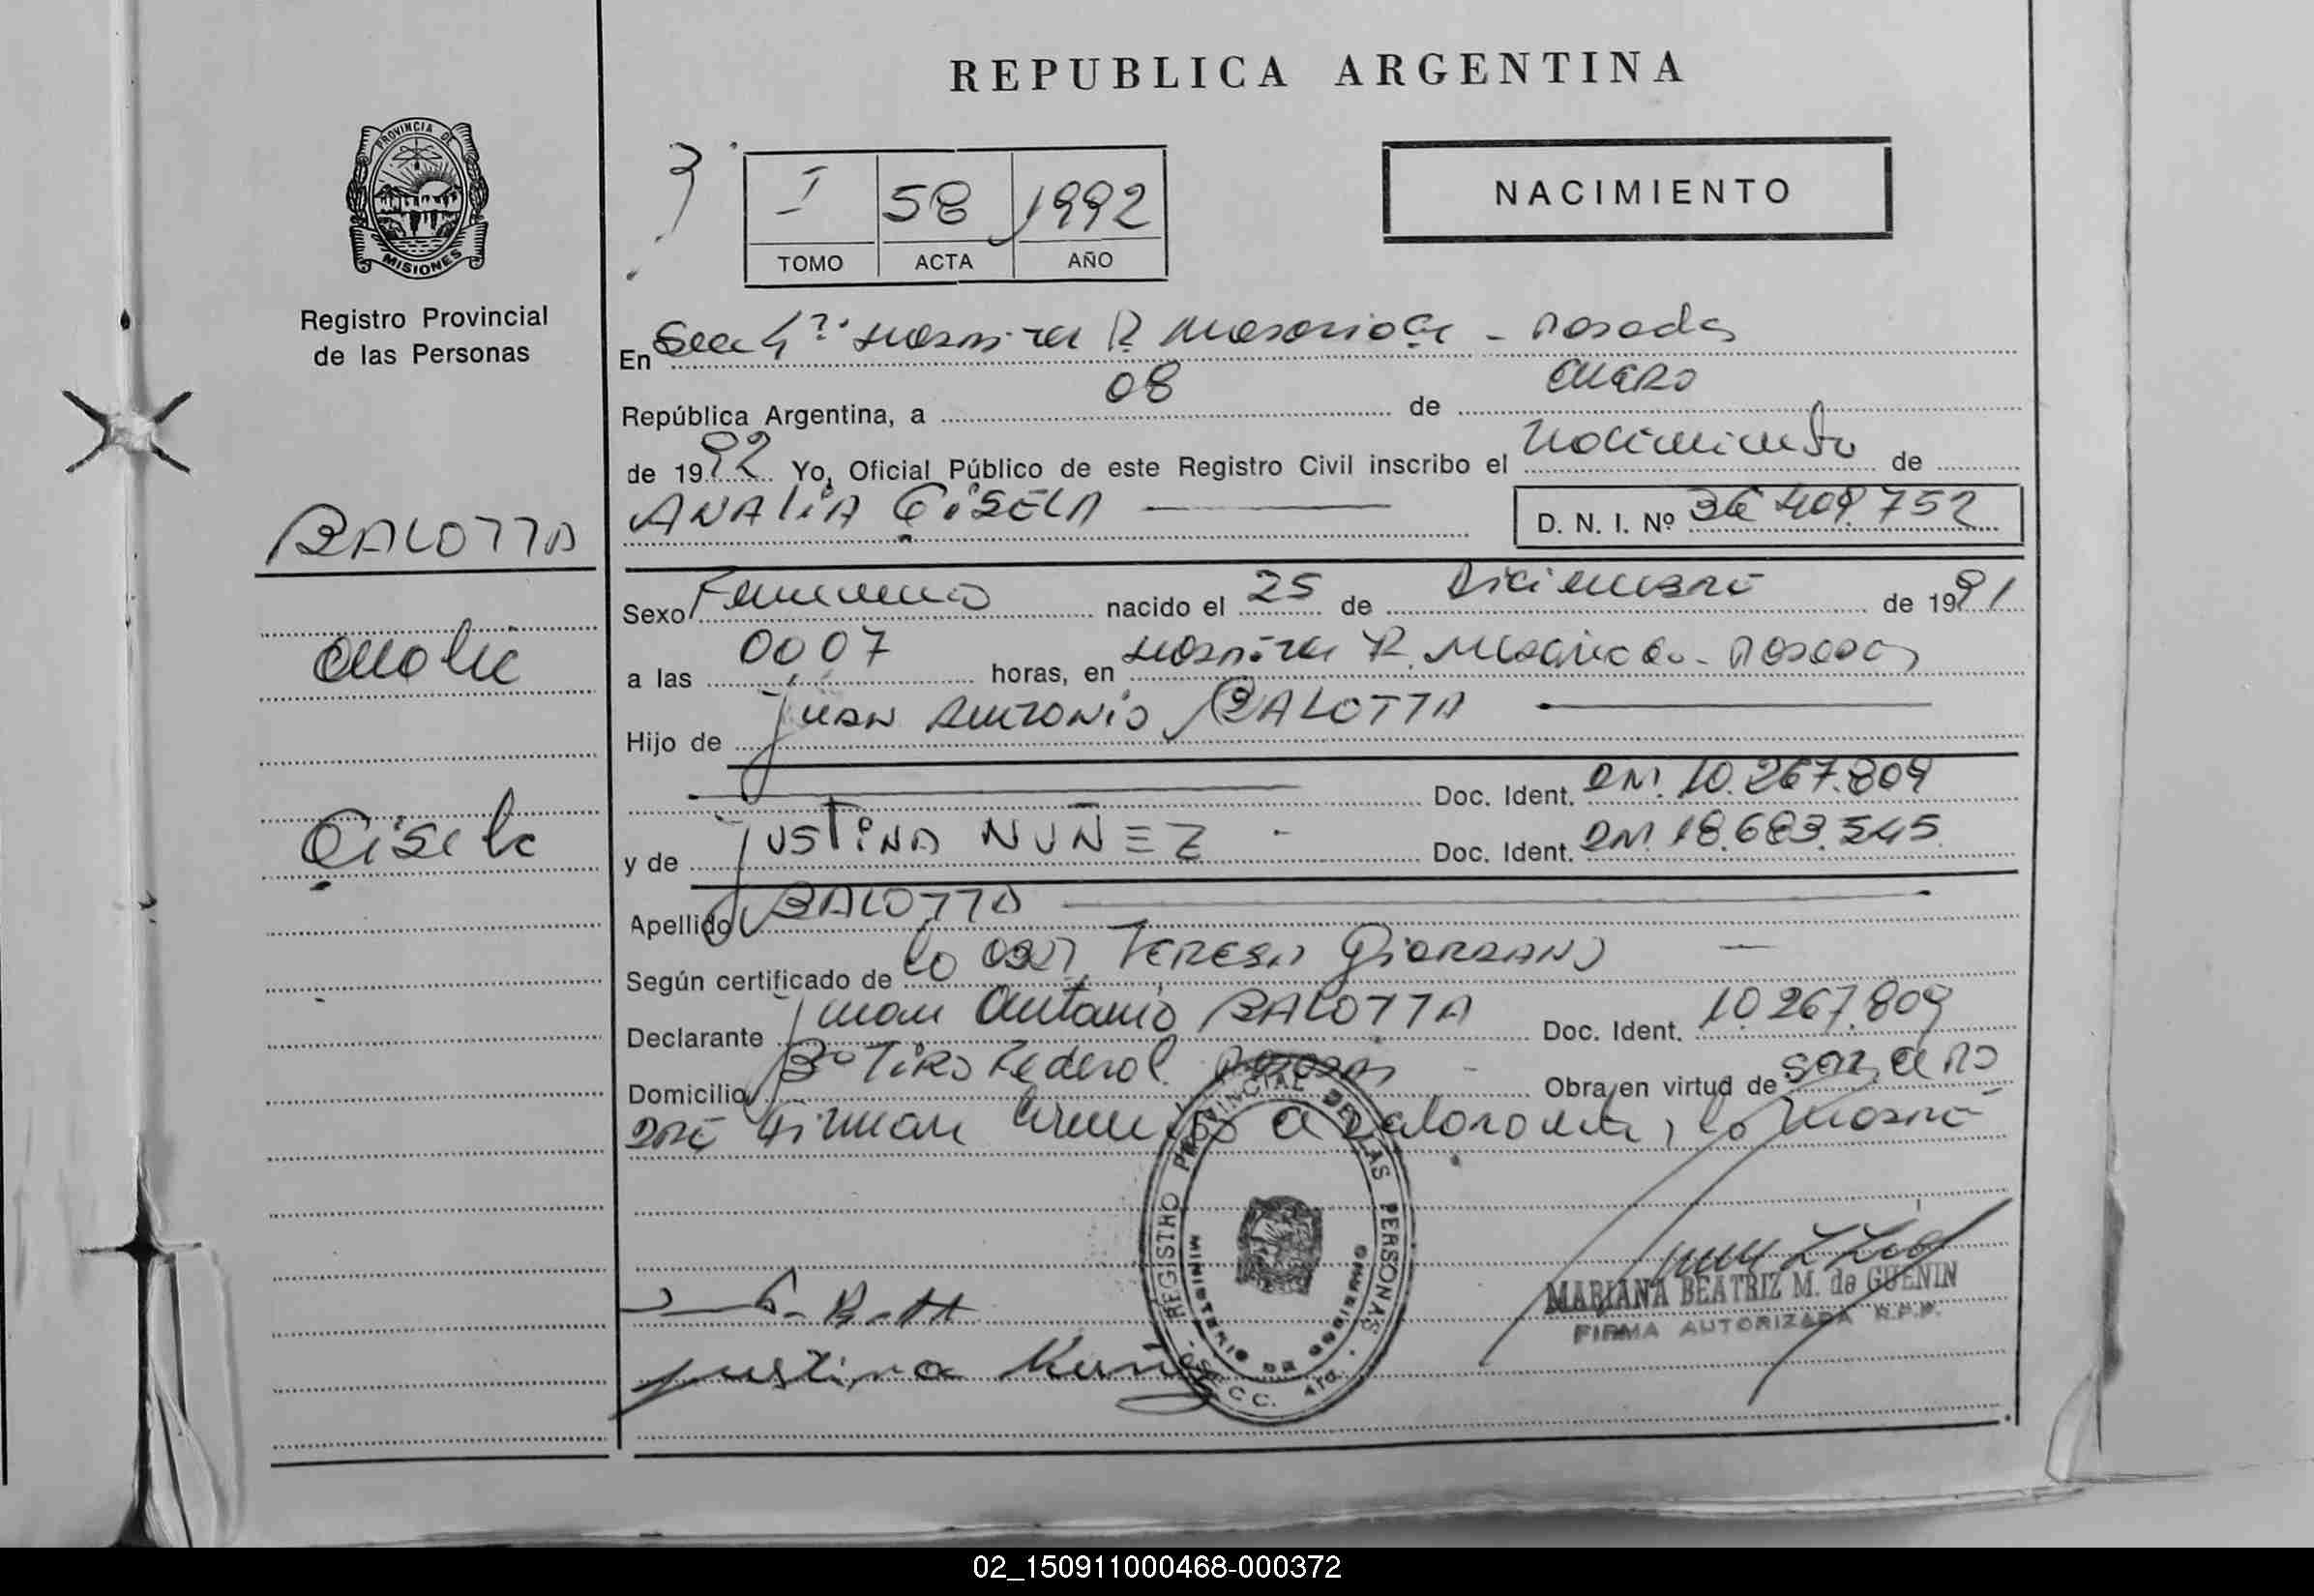 REPUBLICA ARGENTINA
PROVINCIA DE
MISIONES
Registro Provincial
de las Personas
I 58 1992
TOMO ACTA AÑO
NACIMIENTO
En Secc 4ta Hospital R. - Posadas
República Argentina, a 08 de enero
de 1992 Yo, Oficial Público de este Registro Civil inscribo el nacimiento de
ANALIA GISELA D. N. I. Nº 36.409.752
BALOTTA
Analia
Gisela
Sexo Femenino nacido el 25 de Diciembre de 1991
a las 0007 horas, en Hospital R. - Posadas
Hijo de JUAN ANTONIO BALOTTA
Doc. Ident. DNI. 10.267.809
y de JUSTINA NUÑEZ - Doc. Ident. DNI. 18.683.545
Apellido BALOTTA
Según certificado de la TERESA GIORDANO
Declarante Juan Antonio BALOTTA Doc. Ident. 10.267.809
Domicilio Bº Tiro Federal Posadas - Obra en virtud de ser el pa
dre Firman la madre
REGISTRO PROVINCIAL DE LAS PERSONAS
MINISTERIO DE GOBIERNO
SECC. 4ta.
Justina Nuñez
MARIANA BEATRIZ M. de GUENIN
FIRMA AUTORIZADA R.P.P.
02_150911000468-000372